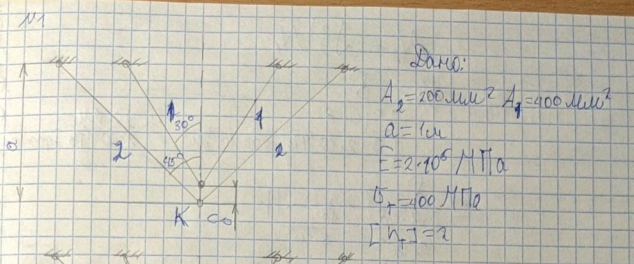 N1
Дано:
A₂=200мм² A₁=400мм²
a=1м
E=2·10⁵ МПа
σт=400 МПа
[nт]=2
1 30° 1
2 45° 2
a
K